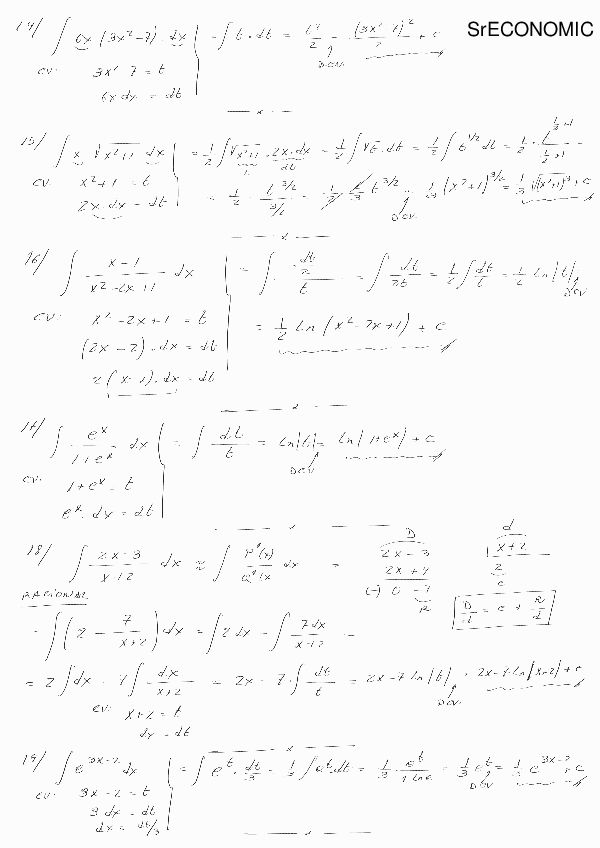 SrECONOMIC
14/ ∫ 6x (3x²-7) · dx = ∫ t · dt = t²/2 = (3x²-7)²/2 + c
DCV
CV: 3x²-7 = t
6x dx = dt
15/ ∫ x √x²+1 dx = 1/2 ∫ √x²+1 · 2x · dx = 1/2 ∫ √t · dt = 1/2 ∫ t^1/2 dt = 1/2 · t^(1/2+1)/(1/2+1) =
CV: x²+1 = t
2x · dx = dt
= 1/2 · t^3/2/(3/2) = 1/2 · 2/3 t^3/2 = 1/3 (x²+1)^3/2 = 1/3 √(x²+1)³ + c
DCV
16/ ∫ (x-1)/(x²-2x+1) dx = ∫ (dt/2)/t = ∫ dt/2t = 1/2 ∫ dt/t = 1/2 ln|t|
DCV
CV: x²-2x+1 = t
= 1/2 ln(x²-2x+1) + c
(2x-2) · dx = dt
2(x-1) · dx = dt
17/ ∫ e^x/(1+e^x) dx = ∫ dt/t = ln|t| = ln|1+e^x| + c
DCV
CV: 1+e^x = t
e^x · dx = dt
18/ ∫ (2x-3)/(x+2) dx ≈ ∫ P(x)/Q(x) dx =
D d
2x-3 x+2
2x+4 2
(-) 0 -7 c
R
D/d = c + R/d
RACIONAL
= ∫ (2 - 7/(x+2)) dx = ∫ 2 dx - ∫ 7dx/(x+2) =
= 2 ∫ dx - 7 ∫ dx/(x+2) = 2x - 7 · ∫ dt/t = 2x - 7 ln|t| = 2x - 7 ln|x+2| + c
DCV
CV: x+2 = t
dx = dt
19/ ∫ e^(3x-2) dx = ∫ e^t · dt/3 = 1/3 ∫ e^t · dt = 1/3 · e^t/(1 ln e) = 1/3 e^t = 1/3 e^(3x-2) + c
DCV
CV: 3x-2 = t
3 dx = dt
dx = dt/3